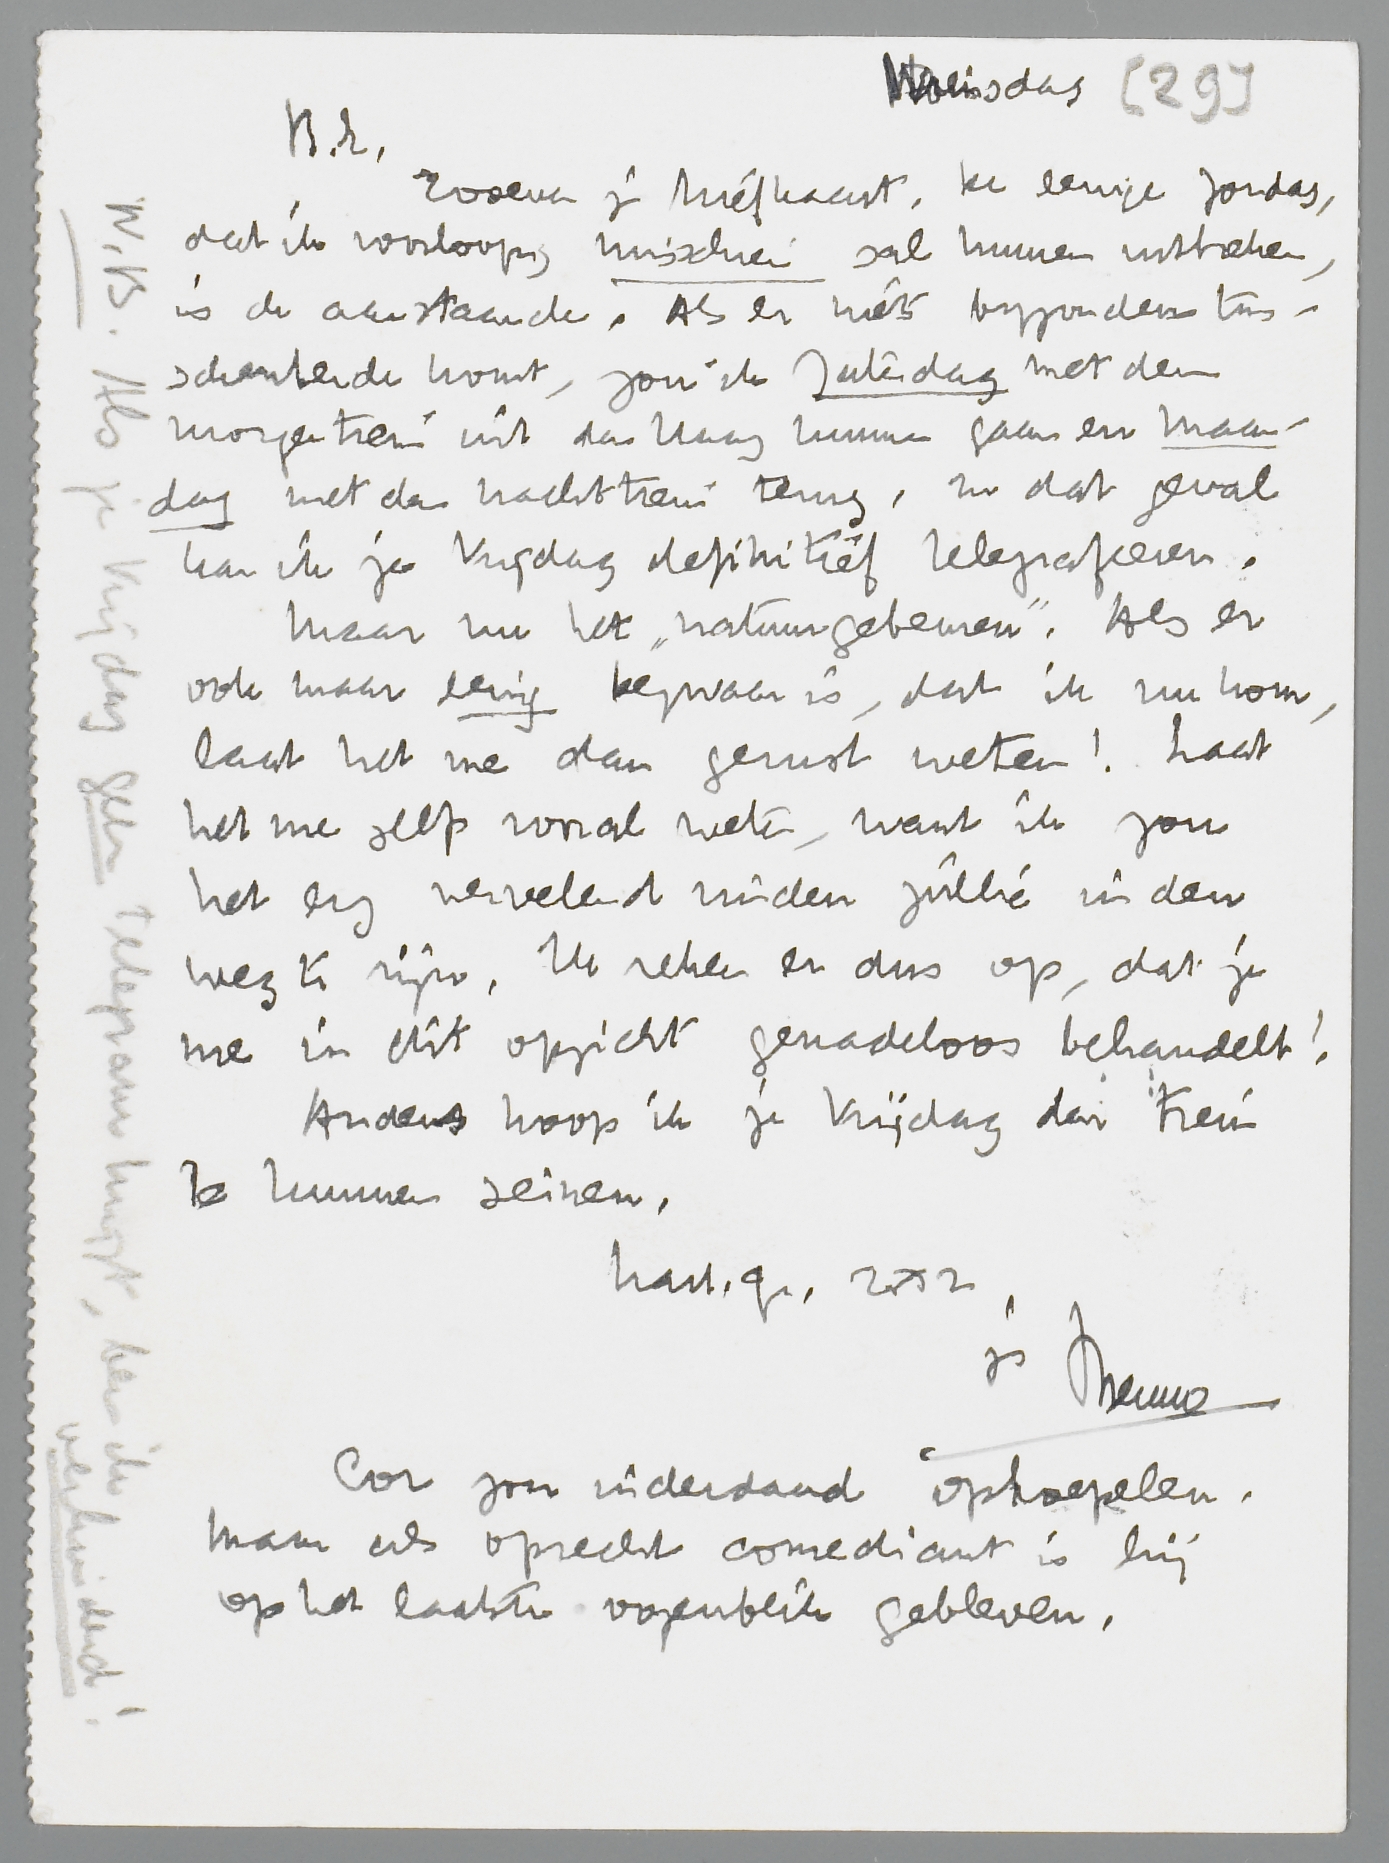 Woensdag [29]
B.E.,
Zooeven je briefkaart. De eenige Zondag,
dat ik voorloopig misschien zal kunnen uittrekken,
is de aanstaande. Als er niets byzonders tus-
schenbeide komt, zou ik Zaterdag met den
morgentrein uit den Haag kunnen gaan en Maan-
dag met den nachttrein terug. In dat geval
kan ik je Vrijdag definitief telegrafeeren.
Maar nu het „natuurgebeuren". Als er
ook maar eenig bezwaar is, dat ik nu kom,
laat het me dan gerust weten! Laat
het me zelfs vooral weten, want ik zou
het erg vervelend vinden jullie in den
weg te zijn. Ik reken er dus op, dat je
me in dit opzicht genadeloos behandelt!
Anders hoop ik je Vrijdag den trein
te kunnen seinen.
hart. gr. 2x2,
je Menno
Cor zou inderdaad ophoepelen.
Maar als oprecht comediant is hij
op het laatste oogenblik gebleven.
N.B. Als je Vrijdag geen telegram krijgt, ben ik
verhinderd!